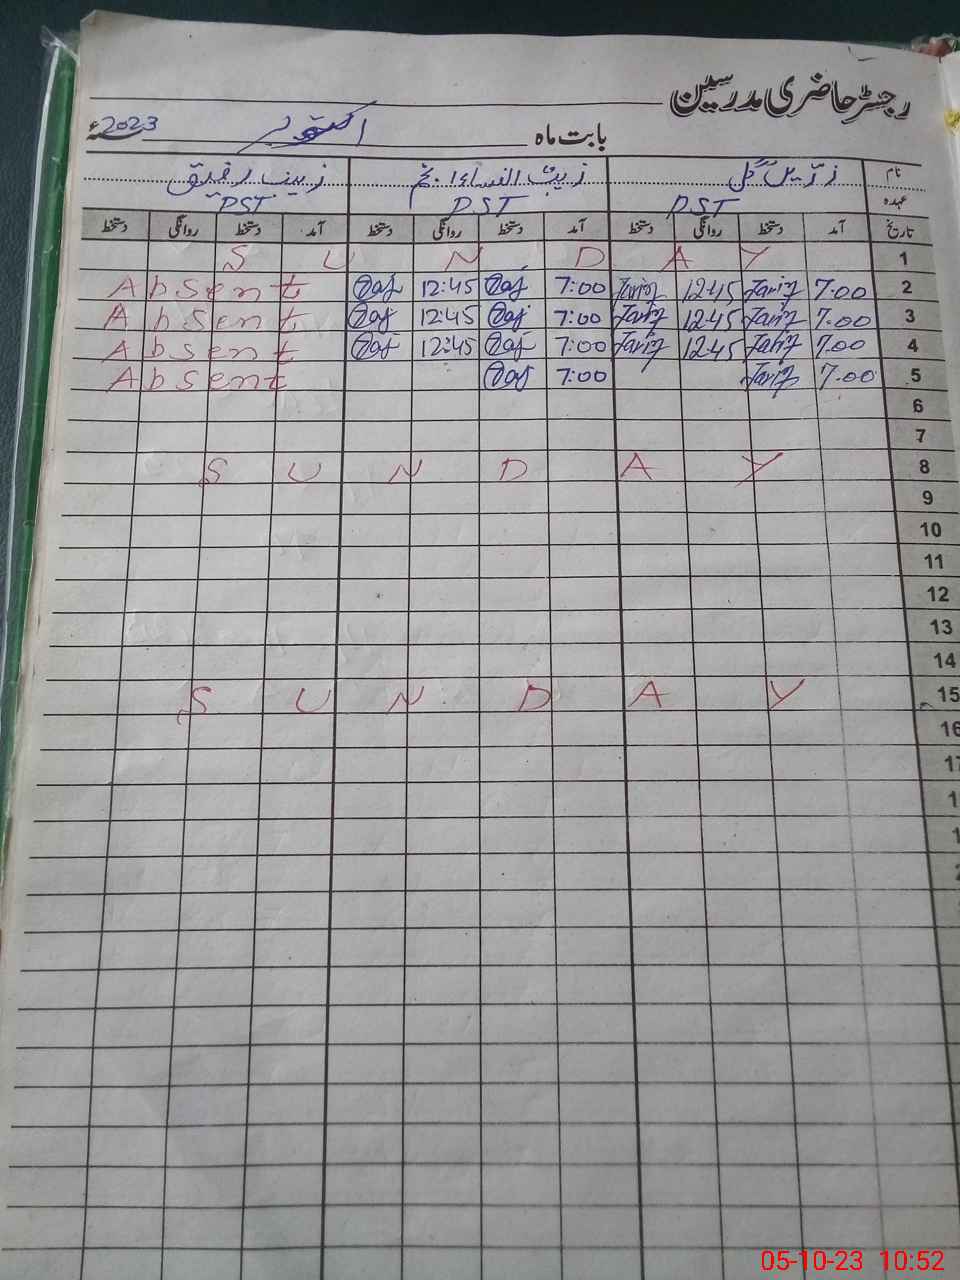 رجسٹر حاضری مدرسین
بابت ماہ اکتوبر سنہ 2023ء
نام زرّین گل زیب النساء انجم زینب رفیق
عہدہ PST PST PST
تاریخ آمد دستخط روانگی دستخط آمد دستخط روانگی دستخط آمد دستخط روانگی دستخط
1 SUNDAY
2 7:00 Tariq 12:45 Tariq 7:00 Taj 12:45 Taj Absent
3 7:00 Tariq 12:45 Tariq 7:00 Taj 12:45 Taj Absent
4 7:00 Tariq 12:45 Tariq 7:00 Taj 12:45 Taj Absent
5 7:00 Tariq 7:00 Taj Absent
6
7
8 SUNDAY
9
10
11
12
13
14
15 SUNDAY
16
17
05-10-23 10:52